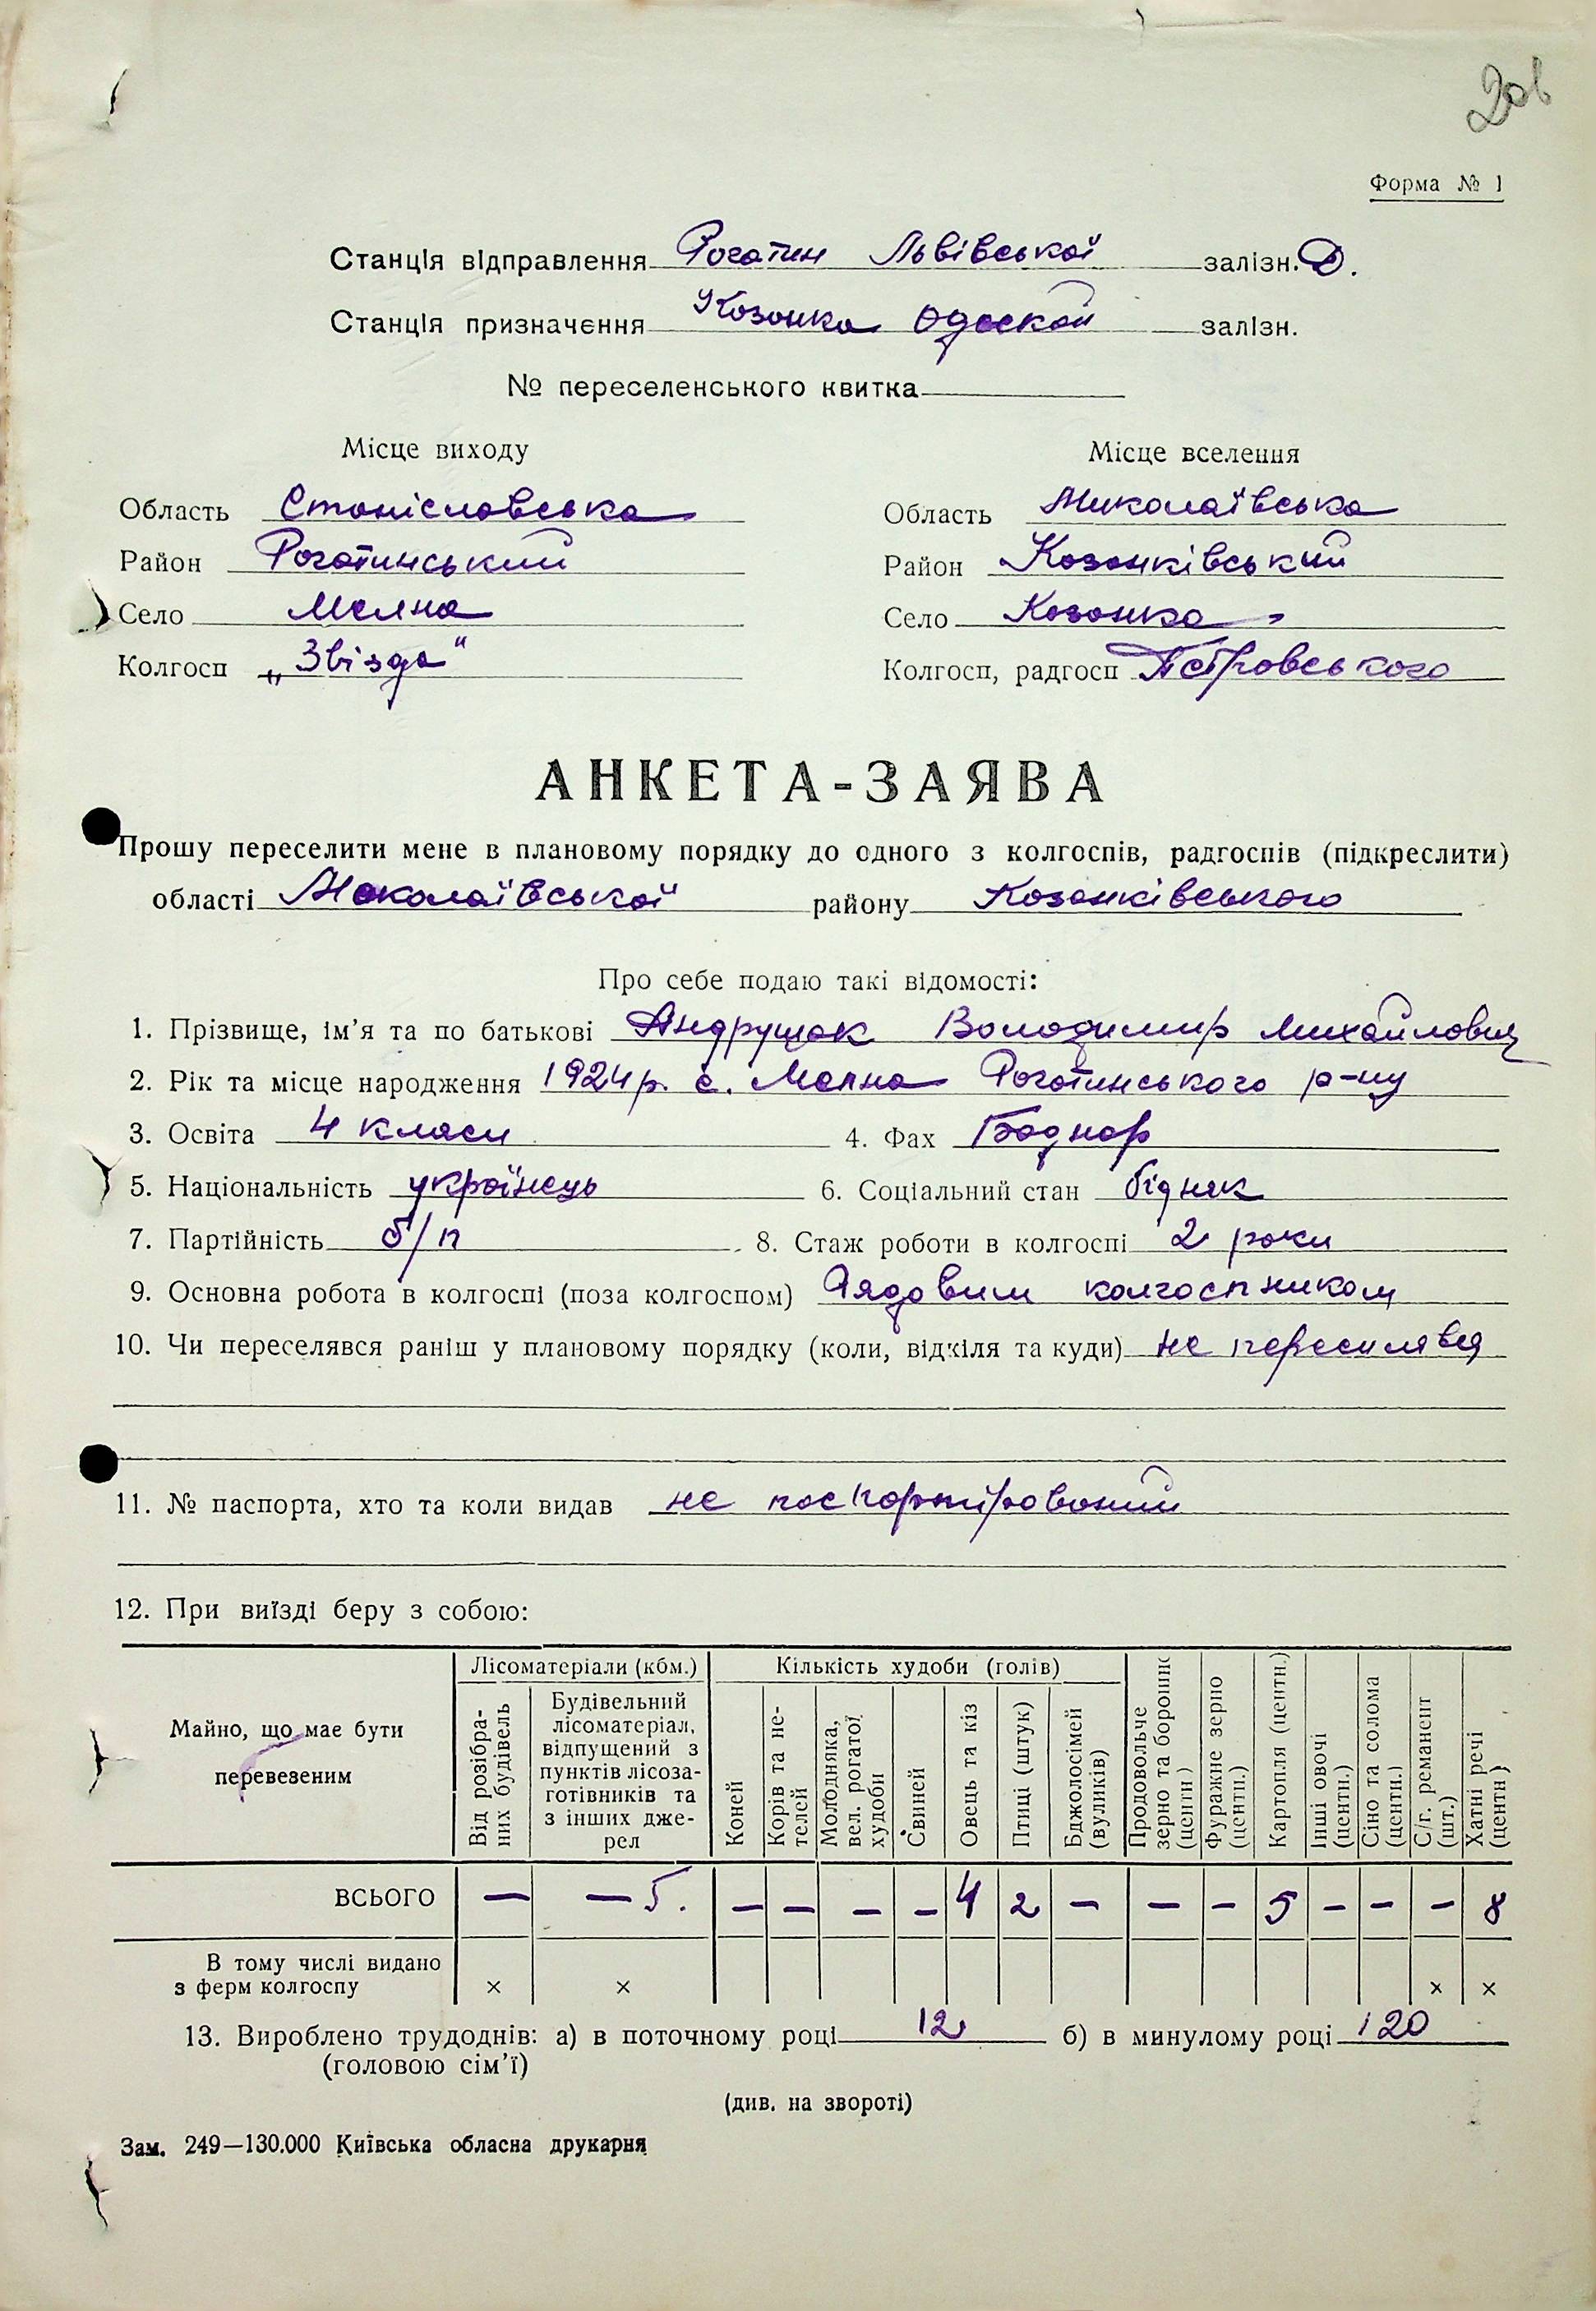 20в
Форма № 1
Станція відправлення Рогатин Львівської залізн. Д.
Станція призначення Козанка Одеской залізн.
№ переселенського квитка
Місце виходу
Місце вселення
Область Станіславська
Область Миколаївська
Район Рогатинський
Район Козанківський
Село Мелна
Село Козанка
Колгосп „Звізда"
Колгосп, радгосп Петровського
АНКЕТА-ЗАЯВА
Прошу переселити мене в плановому порядку до одного з колгоспів, радгоспів (підкреслити)
області Миколаївської району Козанківського
Про себе подаю такі відомості:
1. Прізвище, ім'я та по батькові Андрущак Володимир Михайлович
2. Рік та місце народження 1924 р. с. Мелна Рогатинського р-ну
3. Освіта 4 класи 4. Фах Боднар
5. Національність українець 6. Соціальний стан бідняк
7. Партійність б/п 8. Стаж роботи в колгоспі 2 роки
9. Основна робота в колгоспі (поза колгоспом) Рядовим колгоспником
10. Чи переселявся раніш у плановому порядку (коли, відкіля та куди) не переселявся
11. № паспорта, хто та коли видав не паспортірований
12. При виїзді беру з собою:
Майно, що має бути перевезеним
Лісоматеріали (кбм.)
Кількість худоби (голів)
Від розібраних будівель
Будівельний лісоматеріал, відпущений з пунктів лісозаготівників та з інших джерел
Коней
Корів та нетелей
Молодняка, вел. рогатої худоби
Свиней
Овець та кіз
Птиці (штук)
Бджолосімей (вуликів)
Продовольче зерно та борошно (центн.)
Фуражне зерно (центн.)
Картопля (центн.)
Інші овочі (центн.)
Сіно та солома (центн.)
С/г. реманент (шт.)
Хатні речі (центн.)
ВСЬОГО — — 5. — — — — 4 2 — — — 5 — — — 8
В тому числі видано
з ферм колгоспу × × × ×
13. Вироблено трудоднів: а) в поточному році 12 б) в минулому році 120
(головою сім'ї)
(див. на звороті)
Зам. 249—130.000 Київська обласна друкарня